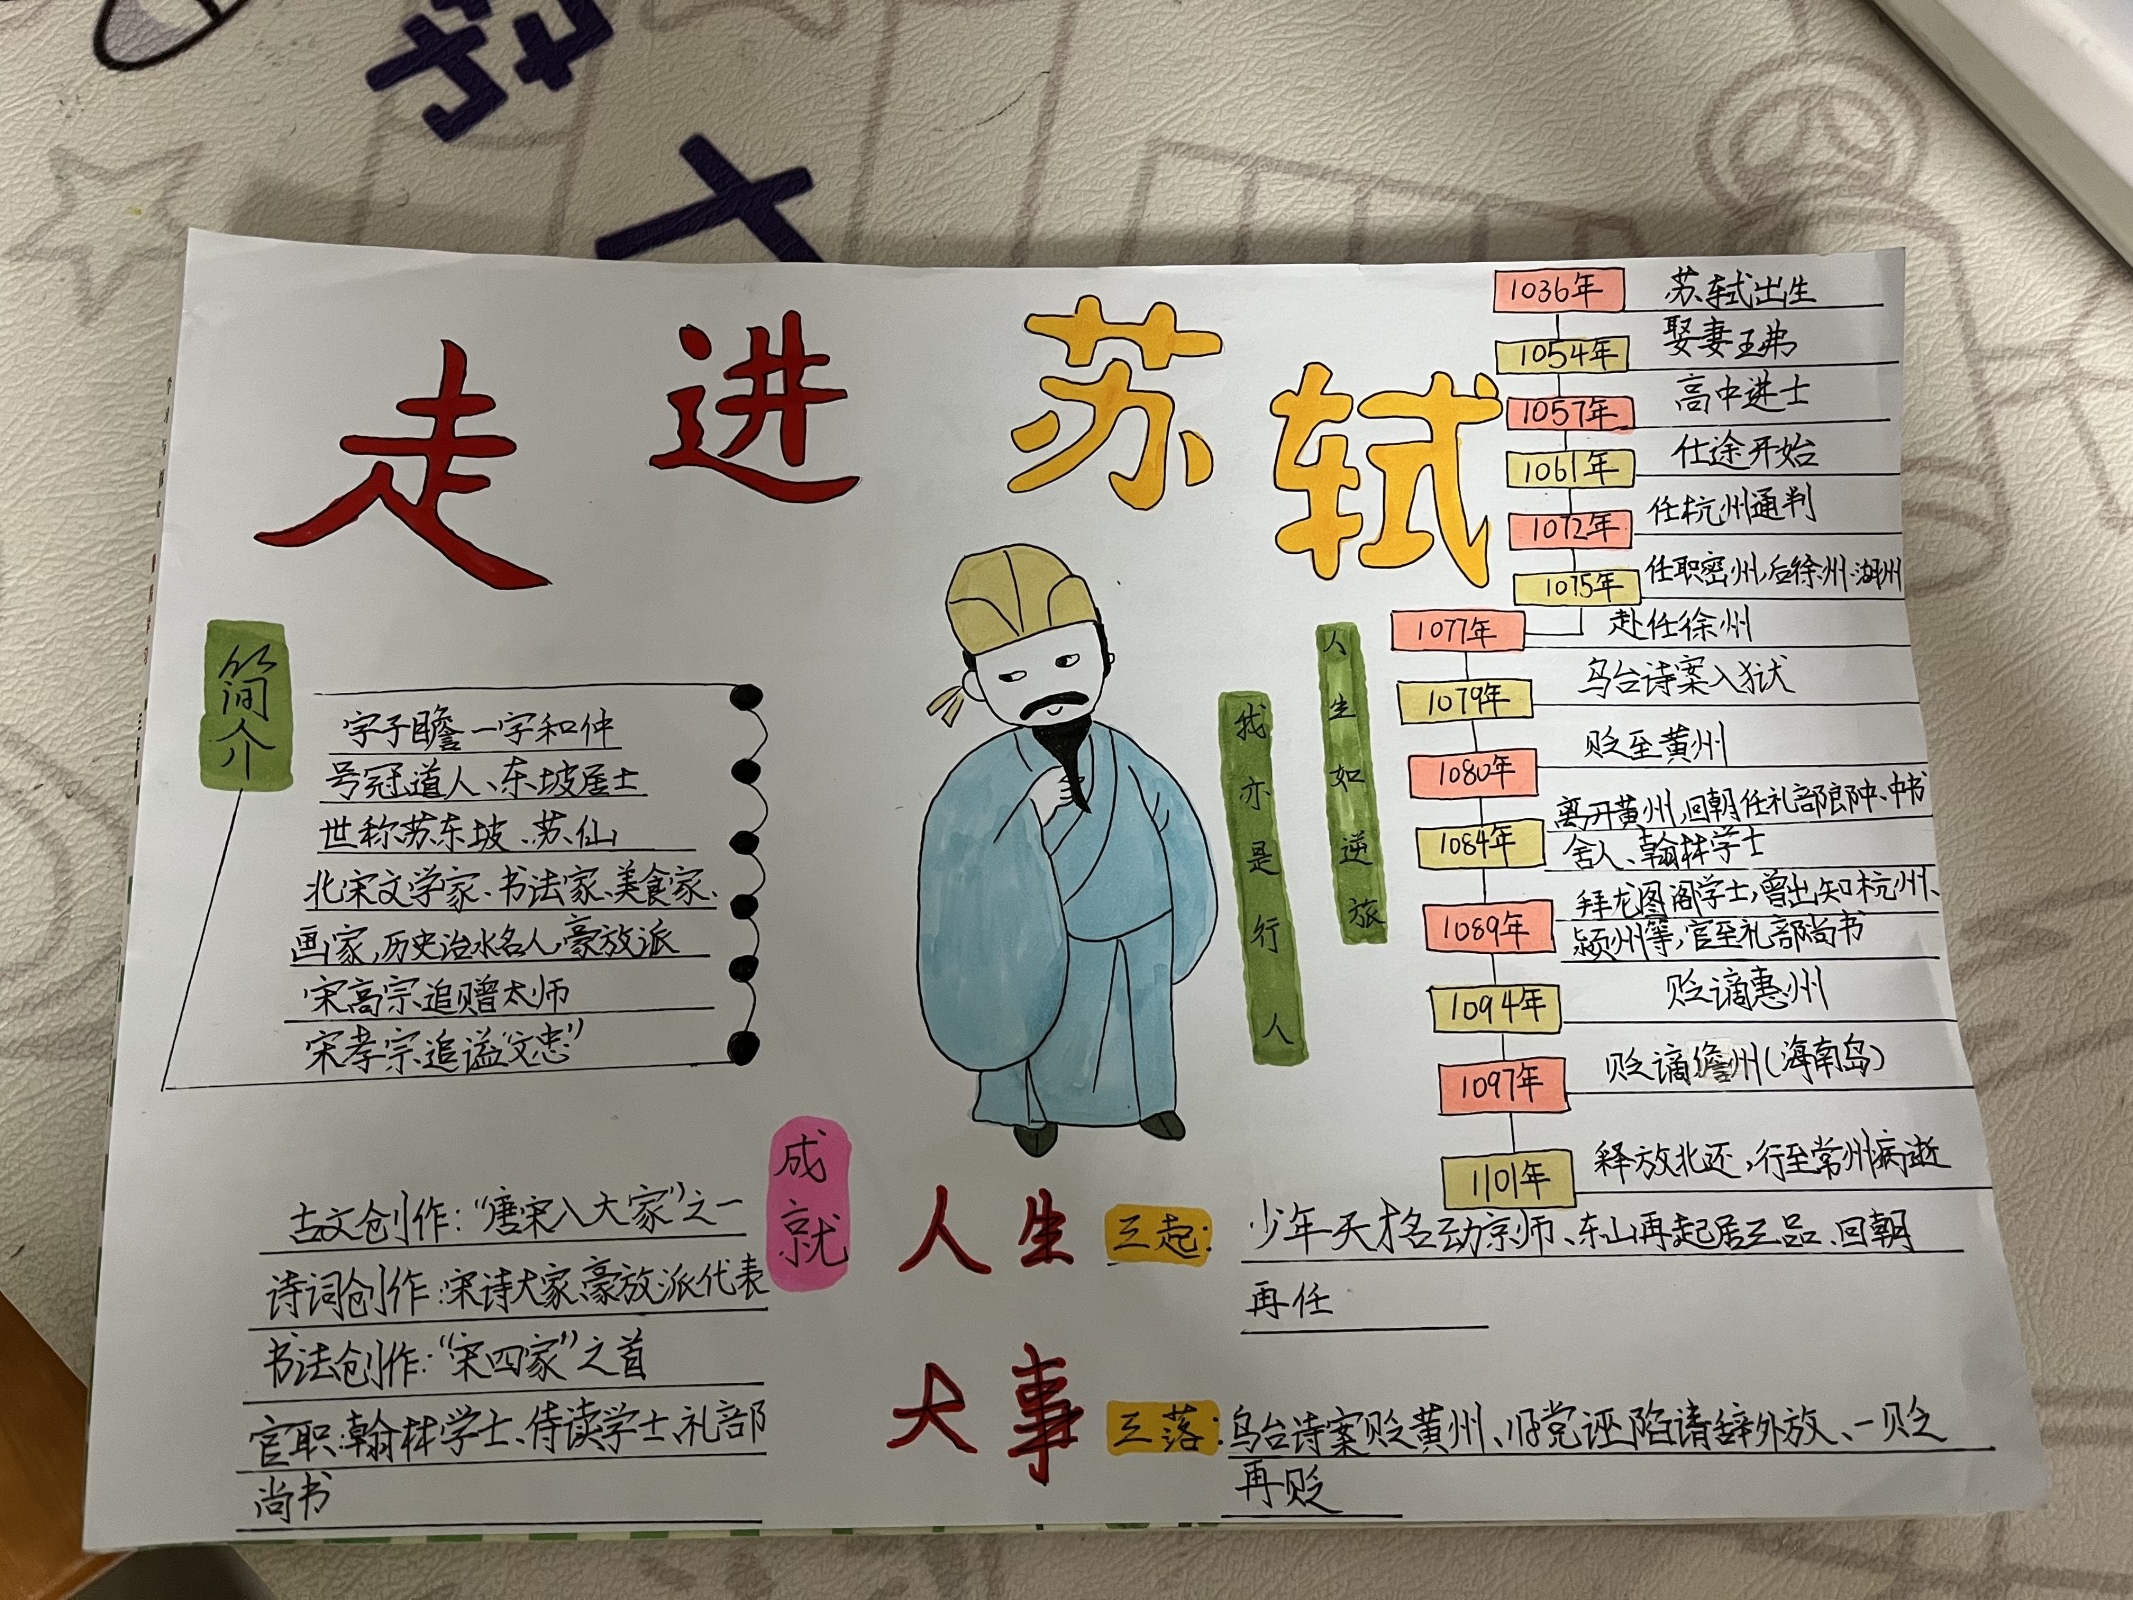 走进苏轼
简介
字子瞻一字和仲
号冠道人、东坡居士
世称苏东坡、苏仙
北宋文学家、书法家、美食家、
画家,历史治水名人,豪放派
宋高宗追赠太师
宋孝宗追谥“文忠”
人生如逆旅
我亦是行人
1036年 苏轼出生
1054年 娶妻王弗
1057年 高中进士
1061年 仕途开始
1072年 任杭州通判
1075年 任职密州,后徐州、湖州
1077年 赴任徐州
1079年 乌台诗案入狱
1080年 贬至黄州
1084年 离开黄州,回朝任礼部郎中、中书
舍人、翰林学士
1089年 拜龙图阁学士,曾出知杭州、
颍州等,官至礼部尚书
1094年 贬谪惠州
1097年 贬谪儋州(海南岛)
1101年 释放北还,行至常州病逝
成就
古文创作:“唐宋八大家”之一
诗词创作:宋诗大家、豪放派代表
书法创作:“宋四家”之首
官职:翰林学士、侍读学士、礼部
尚书
人生
大事
三起:少年天才名动京师、东山再起居三品、回朝
再任
三落:乌台诗案贬黄州、旧党诬陷请辞外放、一贬
再贬